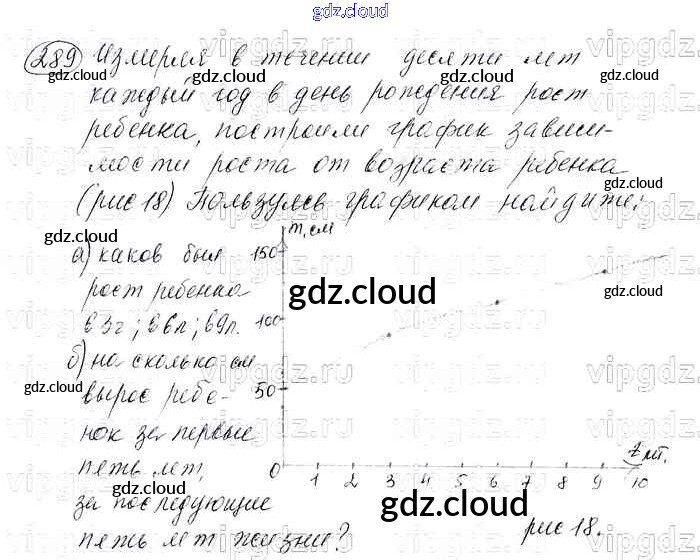 gdz.cloud
289 Измеряя в течении десяти лет
каждый год в день рождения рост
ребенка, построили график зависи-
мости роста от возраста ребенка
(рис 18) Пользуясь графиком найдите:
а) каков был
рост ребенка
в 3г; в 6л; в 9л.
б) на сколько см
вырос ребе-
нок за первые
пять лет,
за последующие
пять лет жизни?
m, см
150
100
50
0 1 2 3 4 5 6 7 8 9 10
t лет.
рис 18.
gdz.cloud
gdz.cloud
gdz.cloud
gdz.cloud
gdz.cloud
gdz.cloud
gdz.cloud
gdz.cloud
gdz.cloud
gdz.cloud
gdz.cloud
vipgdz.ru